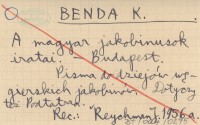 BENDA K.
A magyar jakobinusok
iratai. – Budapest.
Pisma do dziejów wę-
gierskich jakobinów. Dotyczy
też Poktatran.
Rec.: "Reychman J. 1956 a.